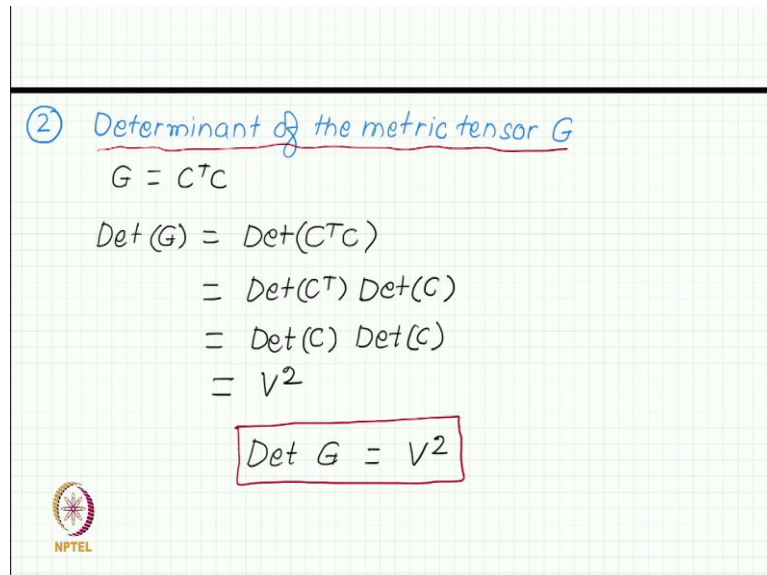 ② Determinant of the metric tensor G
G = CᵀC
Det (G) = Det(CᵀC)
= Det(Cᵀ) Det(C)
= Det(C) Det(C)
= V²
Det G = V²
NPTEL